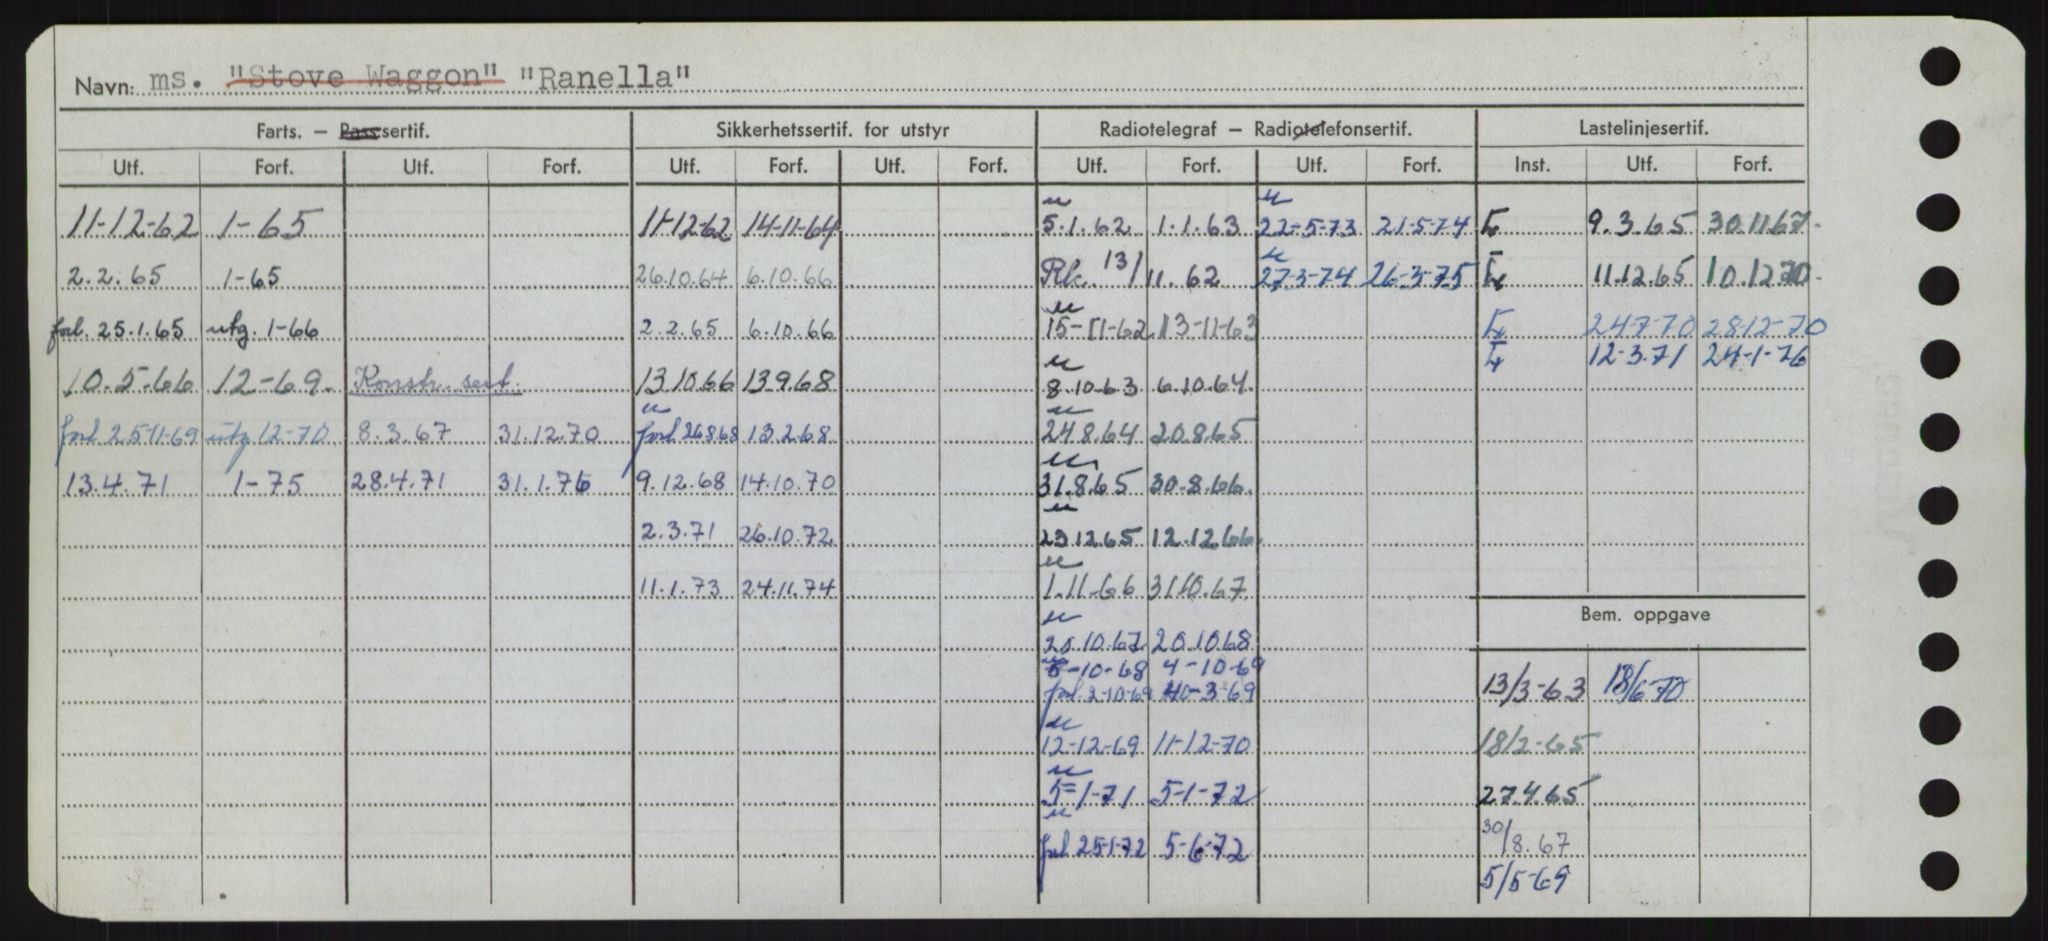 Navn: ms. "Stove Waggon" "Ranella"
Farts. – Passsertif. Sikkerhetssertif. for utstyr Radiotelegraf – Radiotelefonsertif. Lastelinjesertif.
Utf. Forf. Utf. Forf. Utf. Forf. Utf. Forf. Utf. Forf. Utf. Forf. Inst. Utf. Forf.
11-12-62 1-65 11-12-62 14-11-64 5.1.62 1.1.63 22-5-73 21-5-74 9.3.65 30.11.67
2.2.65 1-65 26.10.64 6.10.66 Rk. 13/11.62 27-3-74 26-3-75 11.12.65 10.12.70
forl. 25.1.65 utg. 1-66 2.2.65 6.10.66 15-11-62 13-11-63 24-7-70 28-12-70
12-3.71 24-1-76
10.5-66 12-69. Konstr. sert. 13.10.66 13.9.68 8.10.63 6.10.64.
forl 25-11-69 utg 12-70 8.3.67 31.12.70 forl 26.8.68 13.2.68 24.8.64 20.8.65
13.4.71 1-75 28.4.71 31.1.76 9.12.68 14.10.70 31.8.65 30.8.66.
2.3.71 26.10.72 23.12.65 12.12.66.
11.1.73 24.11.74 1.11-66 31.10.67.
Bem. oppgave
20.10.68
8-10-68 4-10-69
13/3-63 18/6-70
forl. 2-10-69 3-69
12-12-69 11-12-70 18/2-65
5-1-71 5-1-72 27.4.65
forl 25-1-72 5-6-72 30/8.67
5/5-69